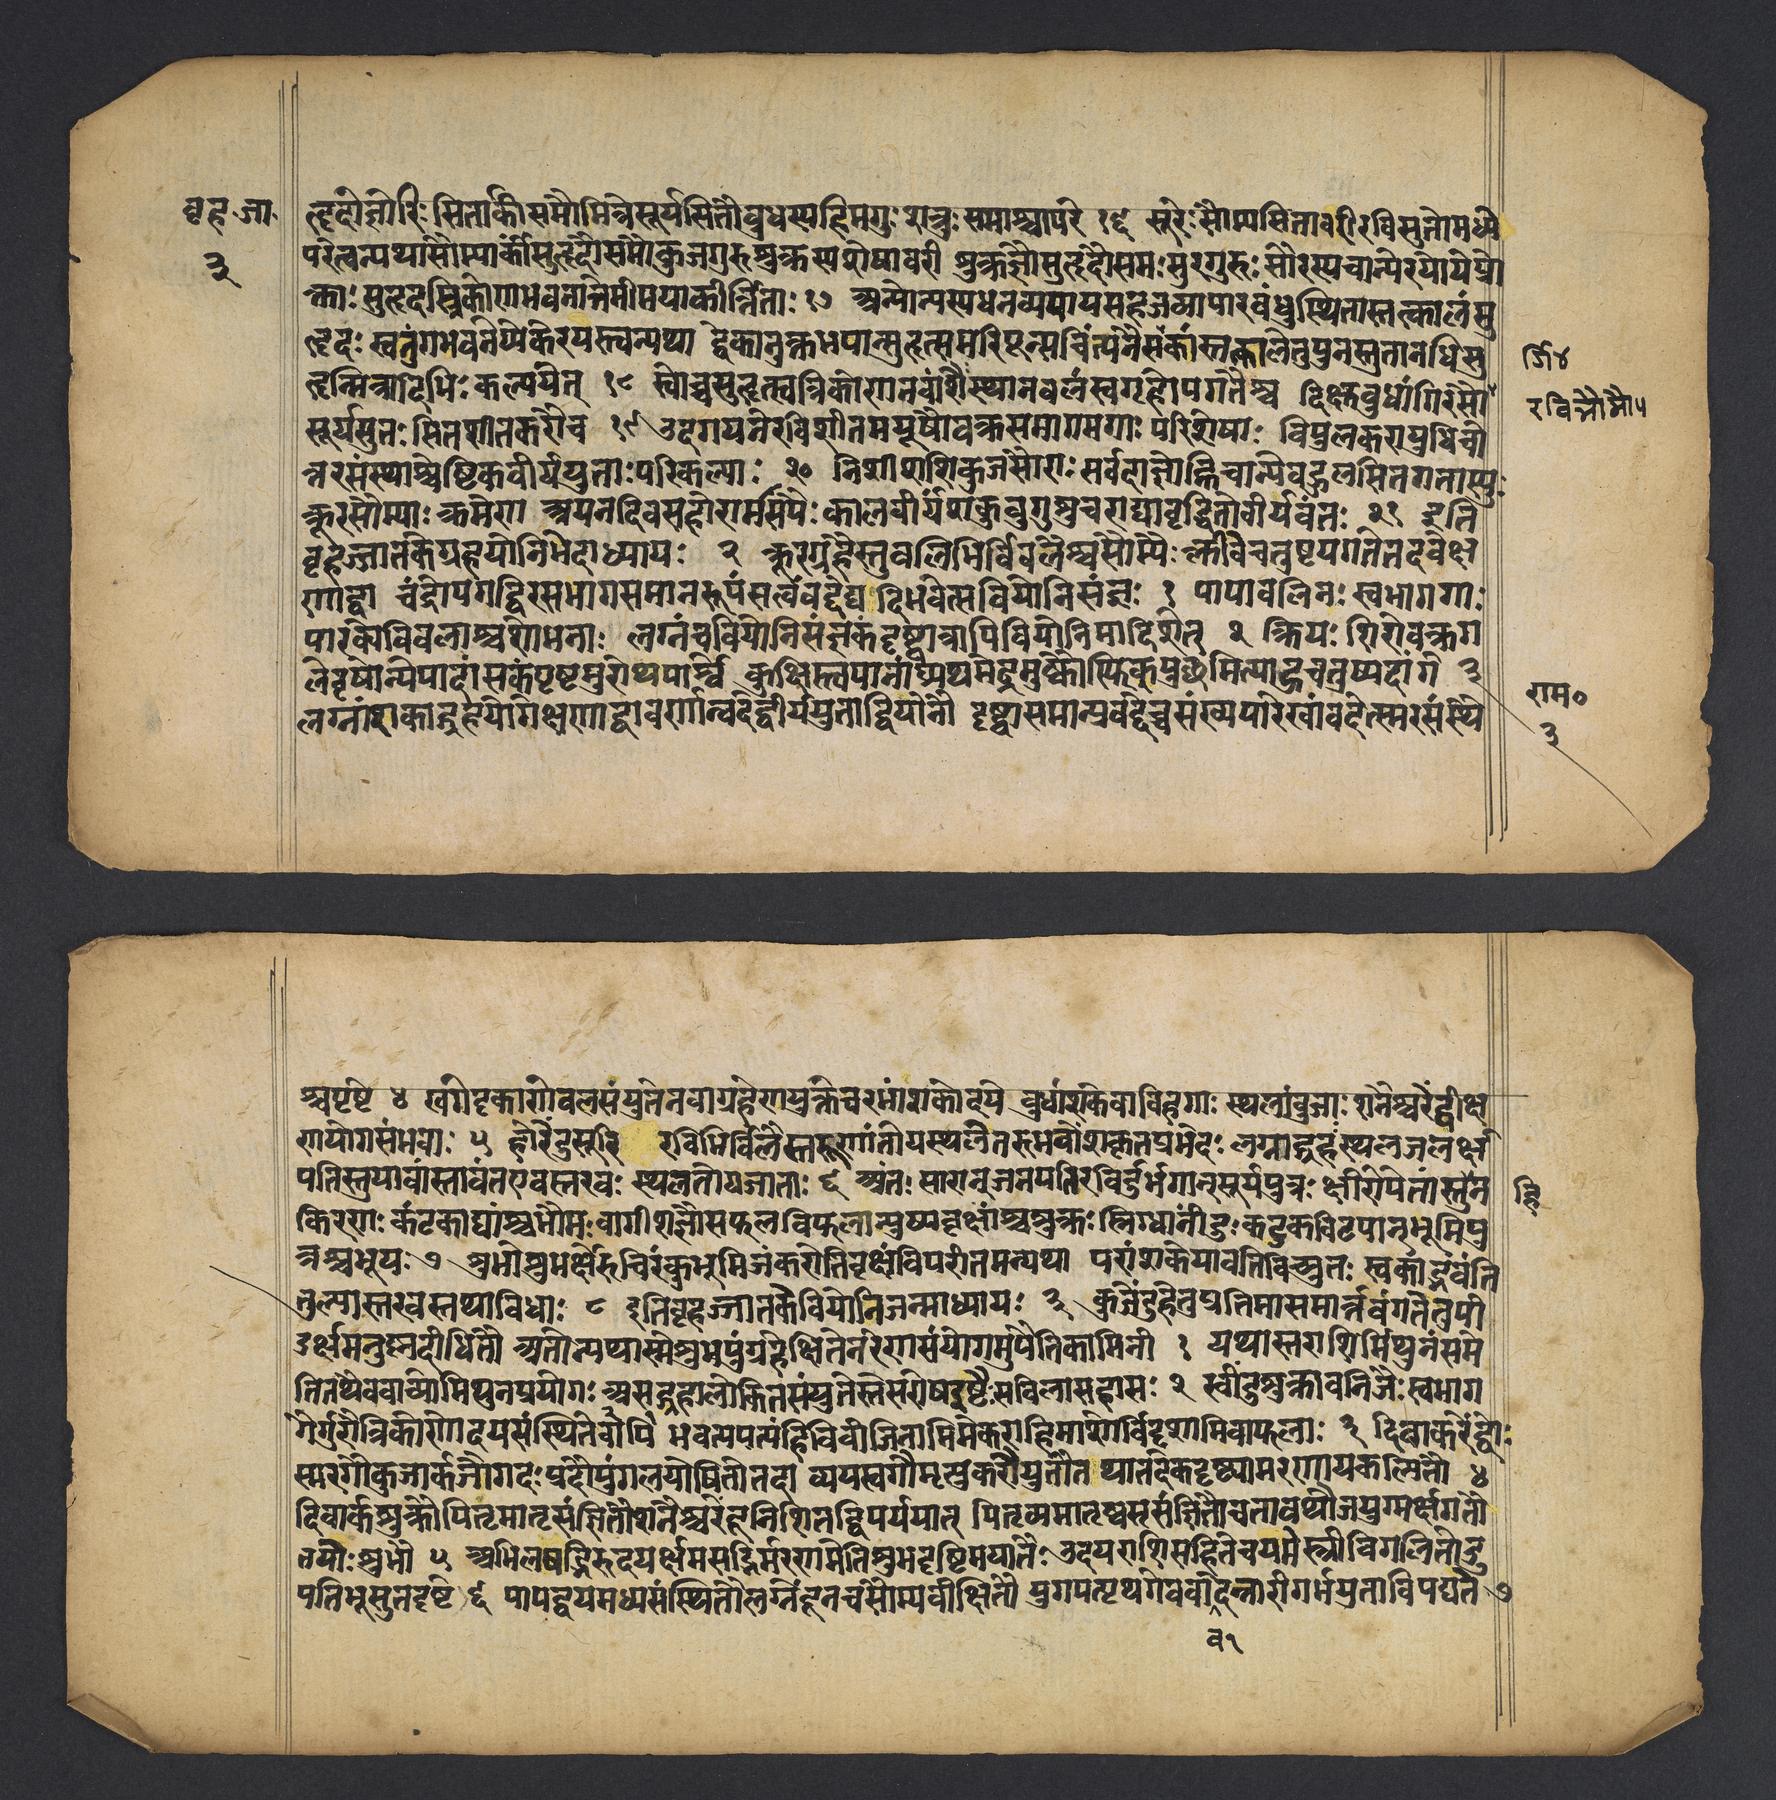 बृह.जा.
३
हृदोज्ञोरिः सितार्कीसमौमित्रेसूर्यसितौबुधस्यहिमगुः शत्रुः समाश्चापरे १६ सूरेः सौम्यसितावरीरविसुतोमध्यो
परेत्वन्यथासौम्यार्कीसुहृदौसमौकुजगुरुशुक्रस्यशेषावरी शुक्रज्ञौसुहृदौसमःसुरगुरुः सौरस्यचान्येरयोयेप्रो
क्ताः सुहृदस्त्रिकोणभवनात्तेमीमयाकीर्त्तिताः १७ अन्योन्यस्यधनव्ययायसहजव्यापारबंधुस्थितास्तत्कालेसु
हृदः स्वतुंगभवनेप्येकेरयस्त्वन्यथा द्व्येकानुक्तभपान्सुहृत्समरिपून्संचिंत्यनैसर्गिकांस्तत्कालेतुपुनस्तुतानधिसु
हृन्मित्रादिभिः कल्पयेत् १८ स्वोच्चसुहृत्स्वत्रिकोणनवांशैस्थानबलंस्वगृहोपगतैश्च दिक्षुबुधांगिरसौ
सूर्यसुतः सितशीतकरौच १९ उदगयनेरविशीतमयूषौवक्रसमागमगाः परिशेषाः विपुलकरायुधिचो
त्तरसंस्थाश्चेष्टिकवीर्ययुताः परिकल्प्याः २० निशीशशिकुजसौराः सर्वदाज्ञोह्निचान्येबहुलसितगताःस्युः
क्रूरसौम्याः क्रमेण अयनदिवसहोरामासपैः कालवीर्यंशकुबुगुशुचराद्यावृद्धितोवीर्यवंतः २१ इति
बृहज्जातकेग्रहयोनिभेदाध्यायः २ क्रूरग्रहैस्तुबलिभिर्विबलैश्चसौम्यैः क्लीबेचतुष्टयगतेतदवेक्ष
णाद्वा चंद्रोपगद्विरसभागसमानरूपंसत्वंवदेद्य दिभवेत्सवियोनिसंज्ञः १ पापाबलिनः स्वभागगाः
पारक्येविबलाश्चशोभनाः लग्नंचवियोनिसंज्ञकंदृष्ट्वात्रापिवियोनिमादिशेत् २ क्रियः शिरोवक्रग
लेवृषोन्येपादांसकंपृष्टमुरोथपार्श्वे कुक्षिस्त्वपानांघ्र्यथमेढ्रमुष्कौस्फिक्पुच्छमित्याहचतुष्पदांगे ३
लग्नांशकाद्ग्रहयोगेक्षणाद्वावर्णान्वदेद्वीर्ययुताद्वियोनौ दृष्ट्वासमान्प्रवदेच्चसंख्यपारेखांवदेत्स्मरसंस्थै
र्जे ४
रविभौमौ ५
राम०
३
श्चपृष्टे ४ खगेदृकाणेबलसंयुतेनवाग्रहेणयुक्तेचरभांशकोदये बुधांशकेवाविहगाः स्थलांबुजाः शनैश्चरेंद्वीक्ष
णयोगसंभवाः ५ होरेंदुसूरि रविभिर्विबलैस्तरूणांतोयस्थलेतरुभवोंशकृतप्रभेदः लग्नाद्ग्रहःस्थलजलर्क्ष
पतिस्तुयावांस्तावंतएवतरवः स्थलतोयजाताः ६ अंतः सारान्जनयतिरविर्दुर्भगान्सूर्यपुत्रः क्षीरोपेतांस्तुहिन
हि
किरणः कंटकाद्यांश्चभौमः वागीशज्ञौसफलविफलान्पुष्पवृक्षांश्चशुक्रः स्निग्धानींदुः कटुकविटपान्भूमिपु
त्रश्चभूयः ७ शुभोशुभर्क्षेरुचिरंकुभूमिजंकरोतिवृक्षंविपरीतमन्यथा परांशकेयावतिविच्युतः स्वकाद्भवंति
तुल्यास्तरवस्तथाविधाः ८ इतिबृहज्जातकेवियोनिजन्माध्यायः ३ कुजेंदुहेतुप्रतिमासमार्त्तवंगतेतुपी
डर्क्षमनुष्णदीधितौ अतोन्यथास्थेशुभपुंग्रहेक्षितेनरेणसंयोगमुपैतिकामिनी १ यथास्तराशिर्मिथुनंसमे
तितथैववाच्योमिथुनप्रयोगः असद्ग्रहालोकितसंयुतेस्तेसरोषइष्टैः सविलासहासः २ रवींदुशुक्रावनिजैः स्वभाग
गैर्गुरौत्रिकोणोदयसंस्थितेवापि भवत्यपत्यंहिविबीजिनामिमेकराहिमांशोर्विदृशामिवाफलाः ३ दिवाकरेंद्वोः
स्मरगौकुजार्कजौगदप्रदौपुंगलयोषितोतदा व्ययस्वगौमृत्युकरौयुतौत थातदेकदृष्ट्यामरणायकल्पितौ ४
दिवार्कशुक्रौपितृमातृसंज्ञितौशनैश्चरेंदूनिशितद्विपर्ययात् पितृव्यमातृष्वसृसंज्ञितौचतावथौजयुग्मर्क्षगतौ
तयोः शुभौ ५ अभिलषद्भिरुदयर्क्षमसद्भिर्मरणमेतिशुभदृष्टिमयाते उदयराशिसहितेचयमेस्त्रीविगलितोडु
पतिभूसुतदृष्टे ६ पापद्वयमध्यसंस्थितौलग्नेंदूनचसौम्यवीक्षितौ युगपत्पृथगेववावदेन्नारीगर्भयुताविपद्यते ७
व१